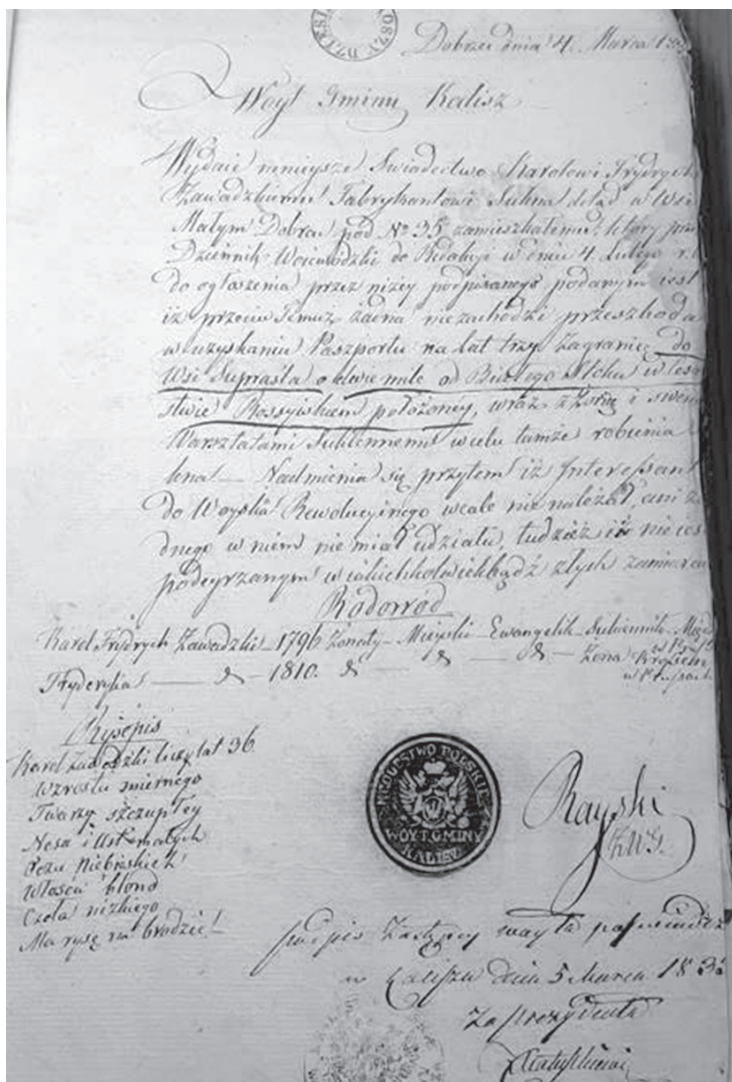 Dobrzec dnia 4. Marca
Woyt Gminy Kalisz
Wydaie ninieysze Swiadectwo Karolowi Frydrych
Zawadzkiemu Fabrykantowi Sukna dotąd w Wsi
Małym Dobrcu pod No 35 zamieszkałemu, który przez
Dziennik Woiewodzki do Redakcyi w dniu 4 Lutego r.
do ogłoszenia przez niżey podpisanego podanym iest
iż przeciw Temuż żadna niezachodzi przeszkoda
w uzyskaniu Paszportu na lat trzy Zagranicę do
Wsi Suprasla o dwie mile od Białego Stoku w
stwie Rossyiskiem położoney, wraz z Żoną i swemi
Warsztatami Sukiennemi w celu tamże robienia
kna — Nadmienia się przytem iż Interessant
do Woyska Rewolucyinego wcale nie należał, ani ża
dnego w niem nie miał udziału, tudzież iż nie ies
podeyrzanym w iakichkolwiekbądź złych zamiarach
Rodowód
Karol Frydrych Zawadzki 1796 Żonaty — Mieyski — Ewangelik — Sukiennik
Fryderyka — 1810. — Żona
w Prusach
Rysopis
Karol Zawadzki liczy lat 36
Wzrostu smiernego
Twarzy szczupłey
Nosa i Ust małych
Oczu Niebieskich
Włosów blond
Czoła nizkiego
Ma rysę na brodzie
KRÓLESTWO POLSKIE
WOYT GMINY
KALISZ
Rayski
Z.W.G.
podpis Zastępcy woyta poświadcz
w Kaliszu dnia 5 Marca 183
Za Prezydenta